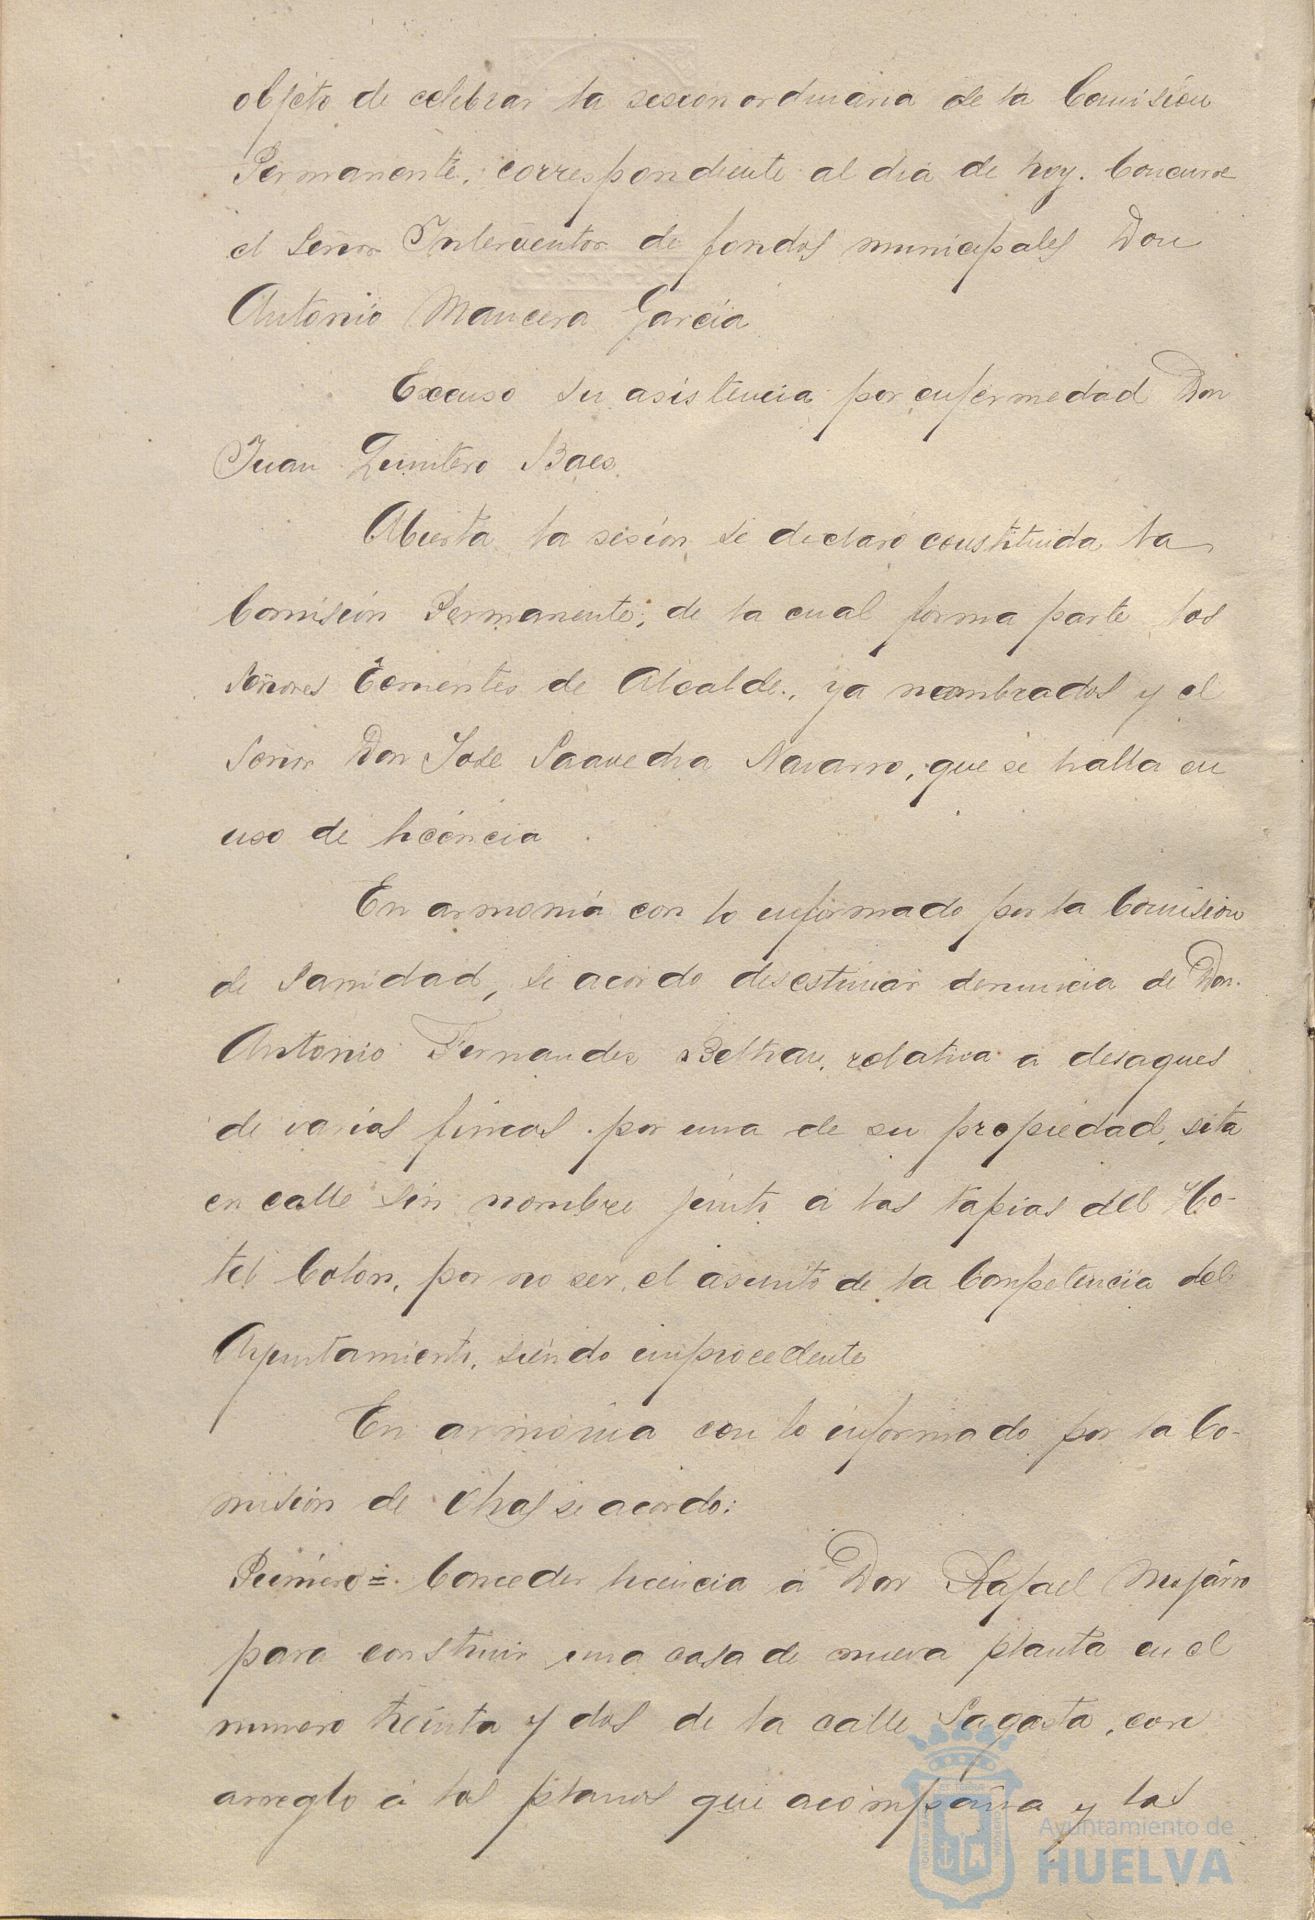 objeto de celebrar la sesion ordinaria de la Comisión
Permanente, correspondiente al dia de hoy. Concurre
el Señor Interventor de fondos municipales Don
Antonio Mancera García
Excuso su asistencia por enfermedad Don
Juan Quintero Baes.
Abierta la sesión se declaró constituida la
Comisión Permanente, de la cual forma parte los
Señores Tenientes de Alcalde, ya nombrados y el
Señor Don Jose Saavedra Navarro, que se halla en
uso de licencia.
En armonia con lo informado por la Comisión
de Sanidad, se acordo desestimar denuncia de Don
Antonio Fernandez Beltran, relativa a desagues
de varias fincas por una de su propiedad, sita
en calle sin nombre junto a las tapias del Ho-
tel Colon, por no ser el asunto de la Competencia del
Ayuntamiento, siendo improcedente
En armonia con lo informado por la Co-
misión de Obras se acordo:
Primero =. Conceder licencia a Don Rafael Mojarro
para construir una casa de nueva planta en el
numero treinta y dos de la calle Sagasta, con
arreglo a los planos que acompaña y las
Ayuntamiento de
HUELVA